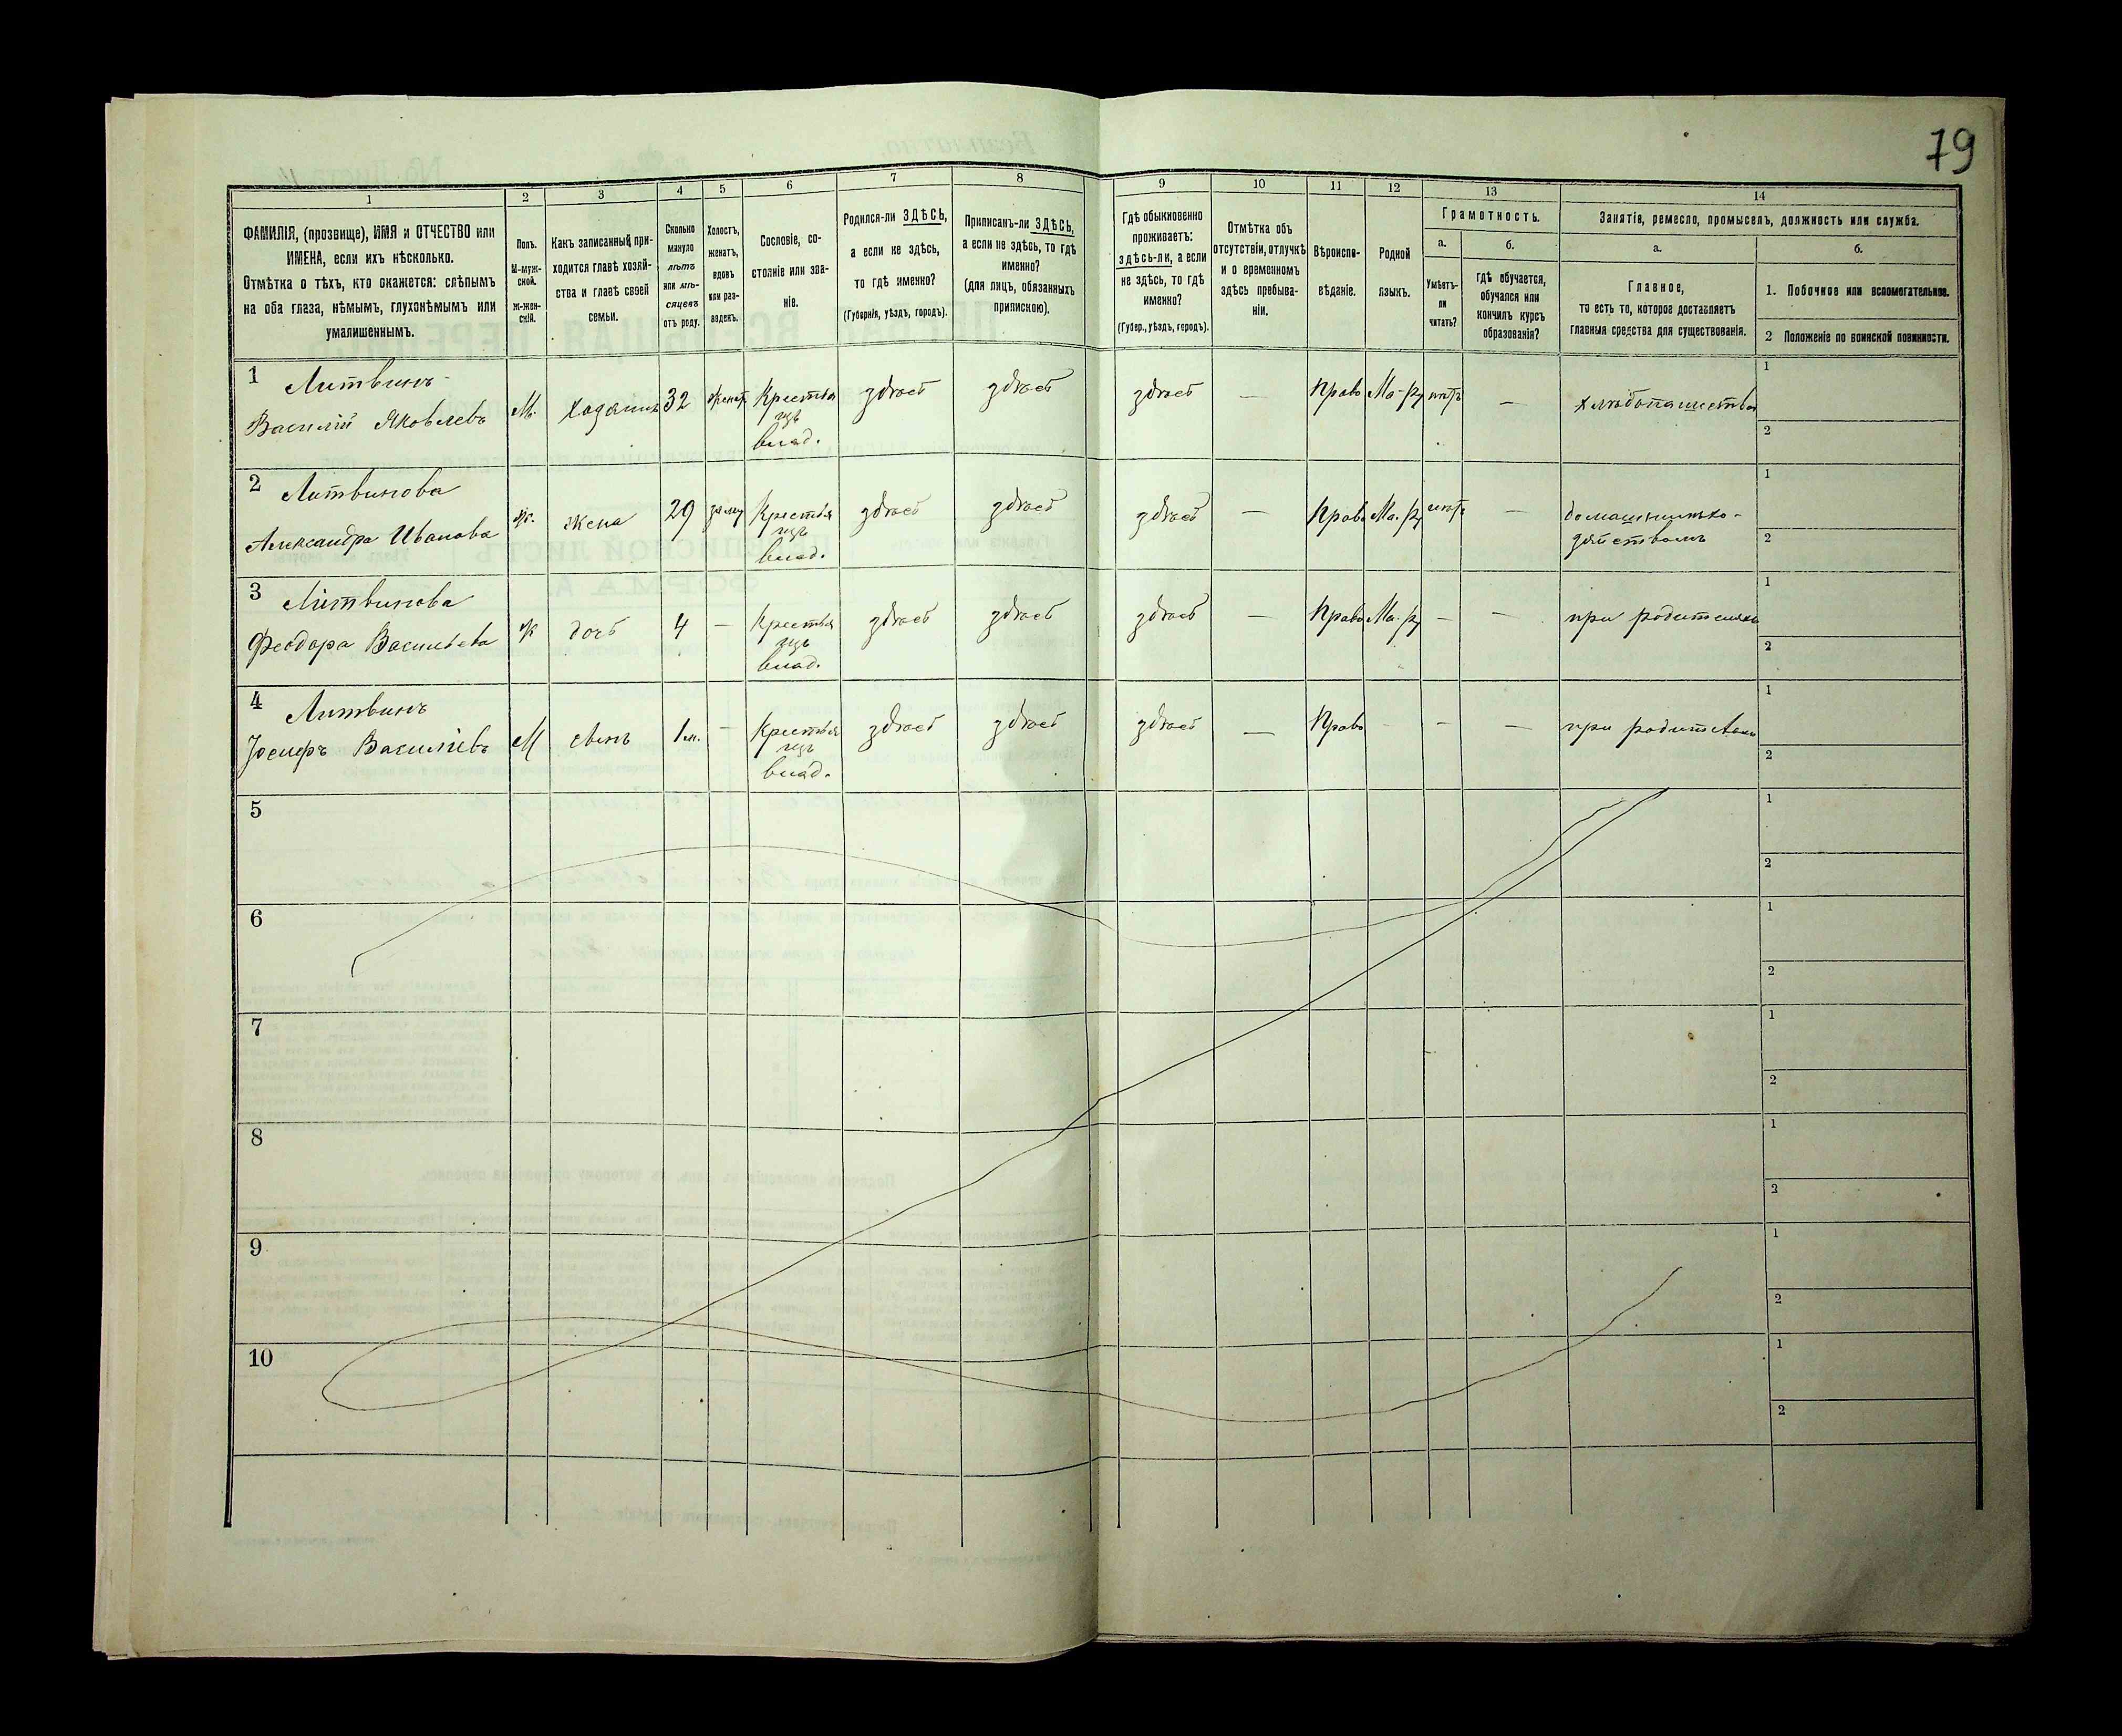 79
1 2 3 4 5 6 7 8 9 10 11 12 13 14
ФАМИЛІЯ, (прозвище), ИМЯ и ОТЧЕСТВО или
ИМЕНА, если ихъ нѣсколько.
Отмѣтка о тѣхъ, кто окажется: слѣпымъ
на оба глаза, нѣмымъ, глухонѣмымъ или
умалишеннымъ.
Полъ.
М-муж-
ской.
Ж-жен-
скій.
Какъ записанный при-
ходится главѣ хозяй-
ства и главѣ своей
семьи.
Сколько
минуло
лѣтъ
или мѣ-
сяцевъ
отъ роду.
Холостъ,
женатъ,
вдовъ
или раз-
веденъ.
Сословіе, со-
стояніе или зва-
ніе.
Родился-ли ЗДѢСЬ,
а если не здѣсь,
то гдѣ именно?
(Губернія, уѣздъ, городъ).
Приписанъ-ли ЗДѢСЬ,
а если не здѣсь, то гдѣ
именно?
(для лицъ, обязанныхъ
припискою).
Гдѣ обыкновенно
проживаетъ:
здѣсь-ли, а если
не здѣсь, то гдѣ
именно?
(Губер., уѣздъ, городъ).
Отмѣтка объ
отсутствіи, отлучкѣ
и о временномъ
здѣсь пребыва-
ніи.
Вѣроиспо-
вѣданіе.
Родной
языкъ.
Грамотность.
а.
Умѣетъ-
ли
читать?
б.
Гдѣ обучается,
обучался или
кончилъ курсъ
образованія?
Занятіе, ремесло, промыселъ, должность или служба.
а.
Главное,
то есть то, которое доставляетъ
главныя средства для существованія.
б.
1. Побочное или вспомогательное.
2 Положеніе по воинской повинности.
1 Литвинъ
Василій Яковлевъ
М. хозяинъ 32 женат Крестья
нцъ
влад.
здѣсь здѣсь здѣсь — Право Ма-ру нѣтъ — хлѣбопашество
1
2
2 Литвинова
Александра Иванова
ж. жена 29 замуж Крестья
нцъ
влад.
здѣсь здѣсь здѣсь — Право Ма-ру нѣтъ —
1
2
3 Литвинова
Феодора Васильева
ж дочь 4 — Крестья
нцъ
влад.
здѣсь здѣсь здѣсь — Право Ма-ру — — при родителяхъ
1
2
4 Литвинъ
Іосифъ Василіевъ
М сынъ 1 м. — Крестья
нцъ
влад.
здѣсь здѣсь здѣсь — Право - — — при родителяхъ
1
2
5
1
2
6
1
2
7
1
2
8
1
2
9
1
2
10
1
2